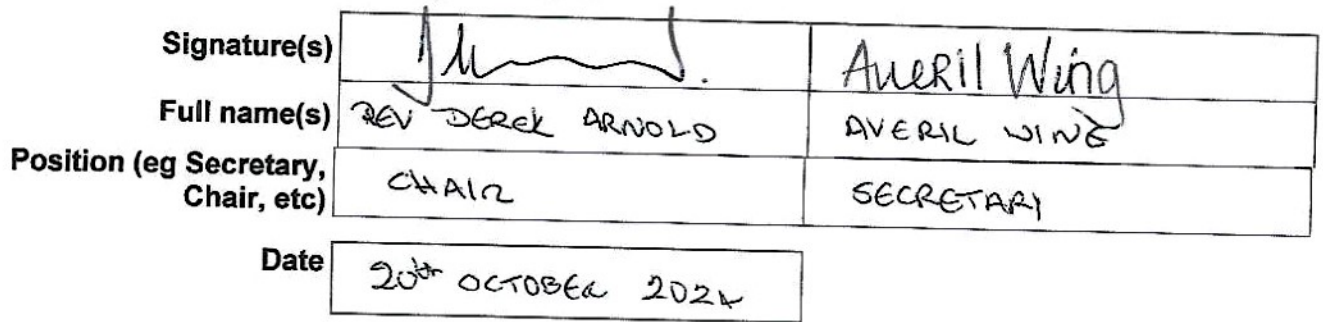 Signature(s) Averil Wing
Full name(s) REV DEREK ARNOLD AVERIL WING
Position (eg Secretary, Chair, etc) CHAIR SECRETARY
Date 20th OCTOBER 2024